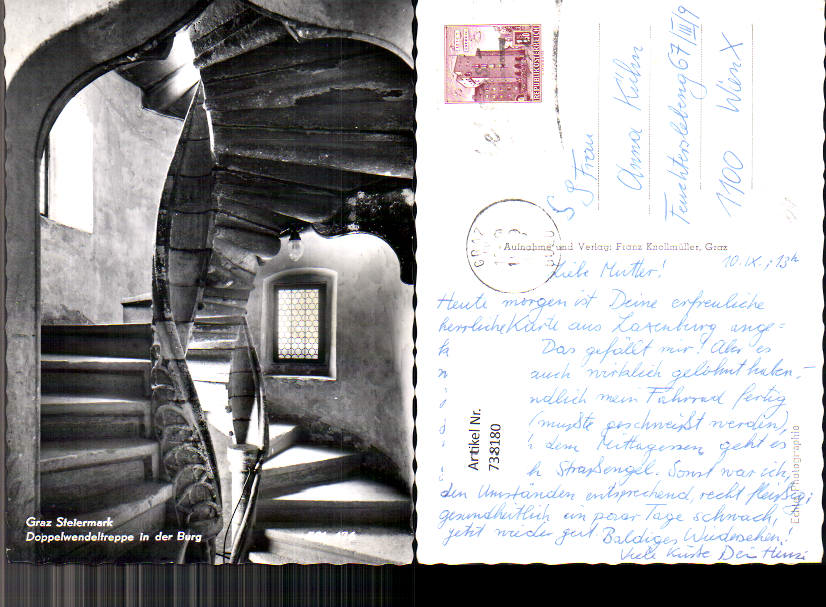 Graz Steiermark
Doppelwendeltreppe in der Burg
REPUBLIK ÖSTERREICH
GRAZ
Frau
Anna Kühn
Feuchterslebeng 67/III/9
1100 Wien X
Aufnahme und Verlag: Franz Knollmüller, Graz
10. IX., 13h
Liebe Mutter!
Heute morgen ist Deine erfreuliche
herrliche Karte aus Laxenburg ange=
Das gefällt mir! Aber es
auch wirklich gelohnt haben. –
ndlich mein Fahrrad fertig
(mußte geschweißt werden),
dem Mittagessen geht es
h Straßengel. Sonst war ich,
den Umständen entsprechend, recht fleißig;
gesundheitlich ein paar Tage schwach,
jetzt wieder gut. Baldiges Wiedersehen!
Viele Küsse Dein Heinzi
Artikel Nr.
738180
Echte Photographie